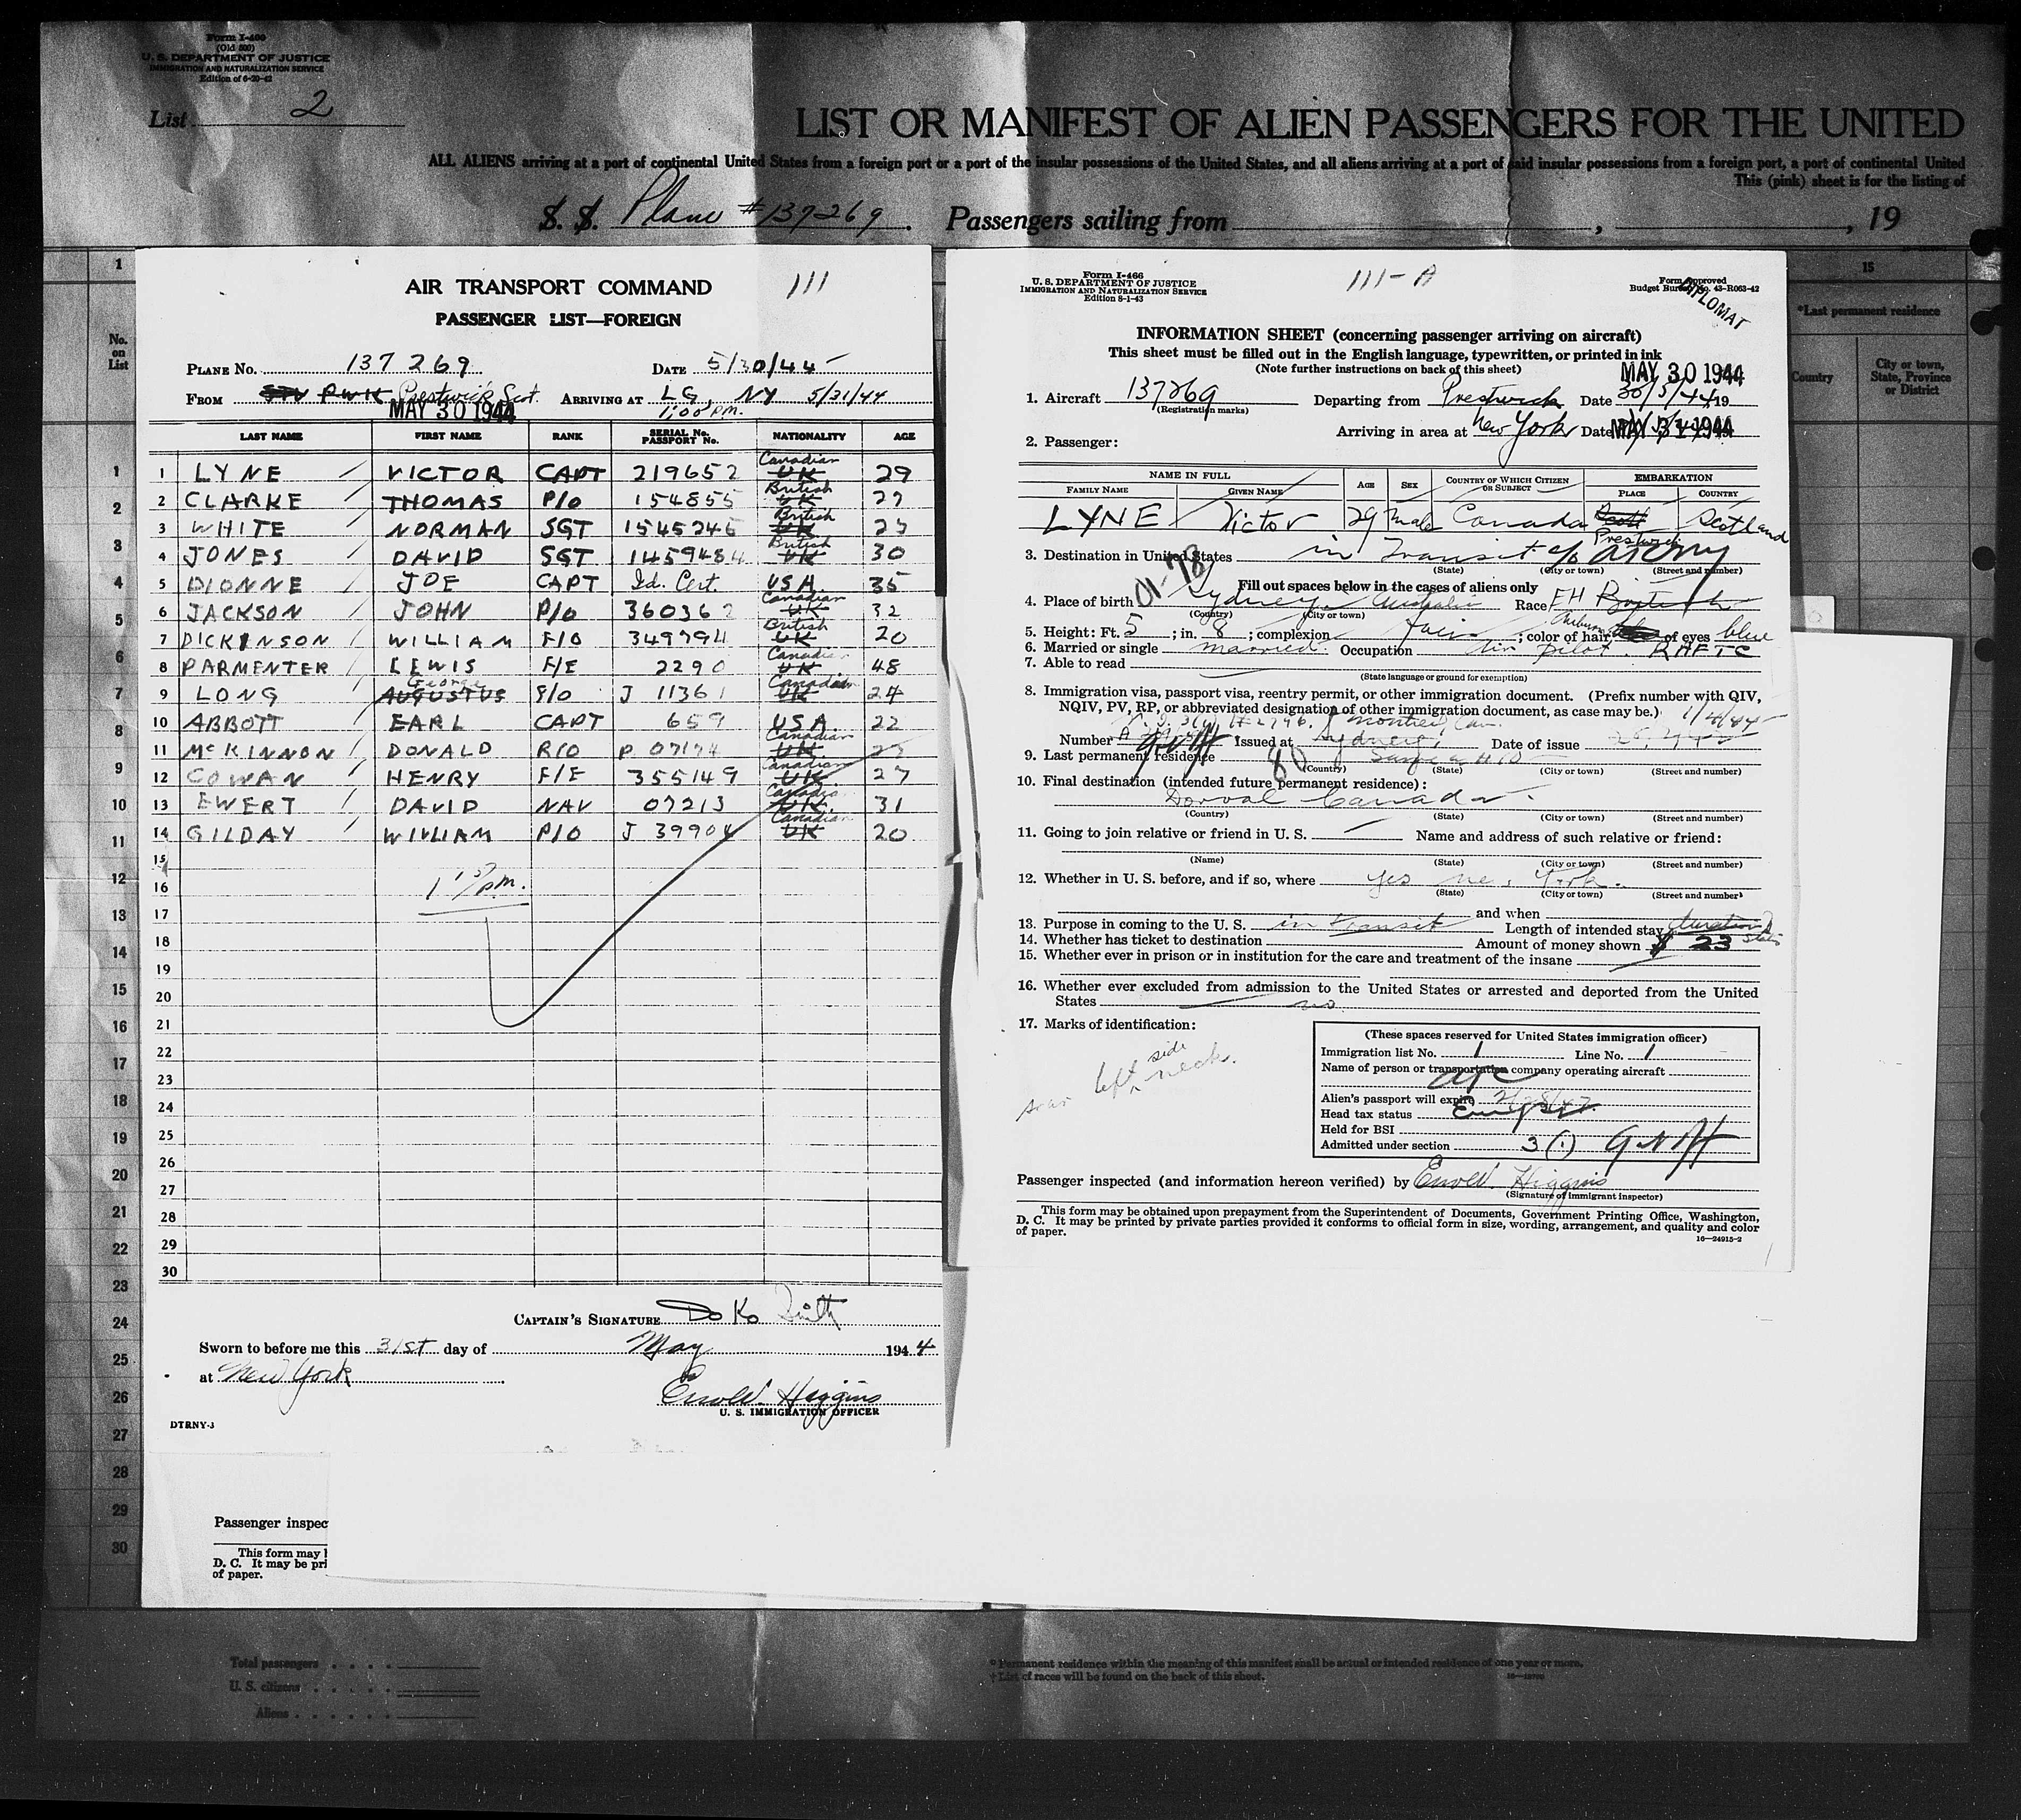 Form I-400
(Old 500)
U. S. DEPARTMENT OF JUSTICE
IMMIGRATION AND NATURALIZATION SERVICE
Edition of 6-20-42
List 2
LIST OR MANIFEST OF ALIEN PASSENGERS FOR THE UNITED
ALL ALIENS arriving at a port of continental United States from a foreign port or a port of the insular possessions of the United States, and all aliens arriving at a port of said insular possessions from a foreign port, a port of continental United
This (pink) sheet is for the listing of
S. S. Plane # 137269. Passengers sailing from , , 19
No. on List
15
*Last permanent residence
Country
City or town, State, Province or District
AIR TRANSPORT COMMAND 111
PASSENGER LIST—FOREIGN
PLANE No. 137 269 DATE 5/30/44
FROM PWK Prestwick Scot. ARRIVING AT LG, NY 5/31/44
MAY 30 1944 1:00 pm.
LAST NAME FIRST NAME RANK SERIAL No. PASSPORT No. NATIONALITY AGE
1 LYNE VICTOR CAPT 219652 UK Canadian 29
2 CLARKE THOMAS P/O 154855 UK British 27
3 WHITE NORMAN SGT 1545246 UK British 23
4 JONES DAVID SGT 1459484 UK British 30
5 DIONNE JOE CAPT Id. Cert. USA 35
6 JACKSON JOHN P/O 360362 UK Canadian 32
7 DICKINSON WILLIAM F/O 349794 UK British 20
8 PARMENTER LEWIS F/E 2290 UK Canadian 48
9 LONG AUGUSTUS George F/O J 11361 UK Canadian 24
10 ABBOTT EARL CAPT 659 USA 22
11 McKINNON DONALD R/O P 07174 UK Canadian 23
12 COWAN HENRY F/E 355149 UK Canadian 27
13 EWERT DAVID NAV 07213 UK Canadian 31
14 GILDAY WILLIAM P/O J 39904 UK Canadian 20
15
16
17
18
19
20
21
22
23
24
25
26
27
28
29
30
CAPTAIN'S SIGNATURE
Sworn to before me this 31st day of May 1944
at New York
Errol W. Higgins
U. S. IMMIGRATION OFFICER
DTRNY-3
Passenger inspec
This form may
D. C. It may be pri
of paper.
Form I-466
U. S. DEPARTMENT OF JUSTICE
IMMIGRATION AND NATURALIZATION SERVICE
Edition 8-1-43
111-A
Form Approved
Budget Bureau No. 43-R063-42
DIPLOMAT
INFORMATION SHEET (concerning passenger arriving on aircraft)
This sheet must be filled out in the English language, typewritten, or printed in ink
(Note further instructions on back of this sheet)
MAY 30 1944
1. Aircraft 137269 Departing from Prestwick Date 30/5/44 19
(Registration marks)
Arriving in area at New York Date MAY 31 1944
2. Passenger:
NAME IN FULL AGE SEX COUNTRY OF WHICH CITIZEN OR SUBJECT EMBARKATION
FAMILY NAME GIVEN NAME PLACE COUNTRY
LYNE Victor 29 Male Canada Scott Prestwick Scotland
3. Destination in United States in Transit c/o
(State) (City or town) (Street and number)
01-78
Fill out spaces below in the cases of aliens only
4. Place of birth Sydney Australia Race British
(Country) (City or town)
5. Height: Ft. 5; in. 8; complexion fair; color of hair Auburn of eyes blue
6. Married or single married. Occupation Air pilot. RAFTC
7. Able to read
(State language or ground for exemption)
8. Immigration visa, passport visa, reentry permit, or other immigration document. (Prefix number with QIV, NQIV, PV, RP, or abbreviated designation of other immigration document, as case may be.)
Number Issued at Sydney, Date of issue
9. Last permanent residence
80
(Country) (State) (City or town) (Street and number)
10. Final destination (intended future permanent residence):
Dorval Canada.
(Country) (State) (City or town) (Street and number)
11. Going to join relative or friend in U. S. Name and address of such relative or friend:
(Name) (State) (City or town) (Street and number)
12. Whether in U. S. before, and if so, where yes New York.
(State) (City or town) (Street and number)
and when
13. Purpose in coming to the U. S. in transit Length of intended stay
14. Whether has ticket to destination Amount of money shown $ 23
15. Whether ever in prison or in institution for the care and treatment of the insane
16. Whether ever excluded from admission to the United States or arrested and deported from the United States no
17. Marks of identification:
scar left side neck.
(These spaces reserved for United States immigration officer)
Immigration list No. 1 Line No. 1
Name of person or transportation company operating aircraft
ATC
Alien's passport will expire
Head tax status Exempt
Held for BSI
Admitted under section 3 (1)
Passenger inspected (and information hereon verified) by Errol W. Higgins
(Signature of immigrant inspector)
This form may be obtained upon prepayment from the Superintendent of Documents, Government Printing Office, Washington,
D. C. It may be printed by private parties provided it conforms to official form in size, wording, arrangement, and quality and color
of paper.
16—24915-2
Total passengers
U. S. citizens
Aliens
* Permanent residence within the meaning of this manifest shall be actual or intended residence of one year or more.
† List of races will be found on the back of this sheet.